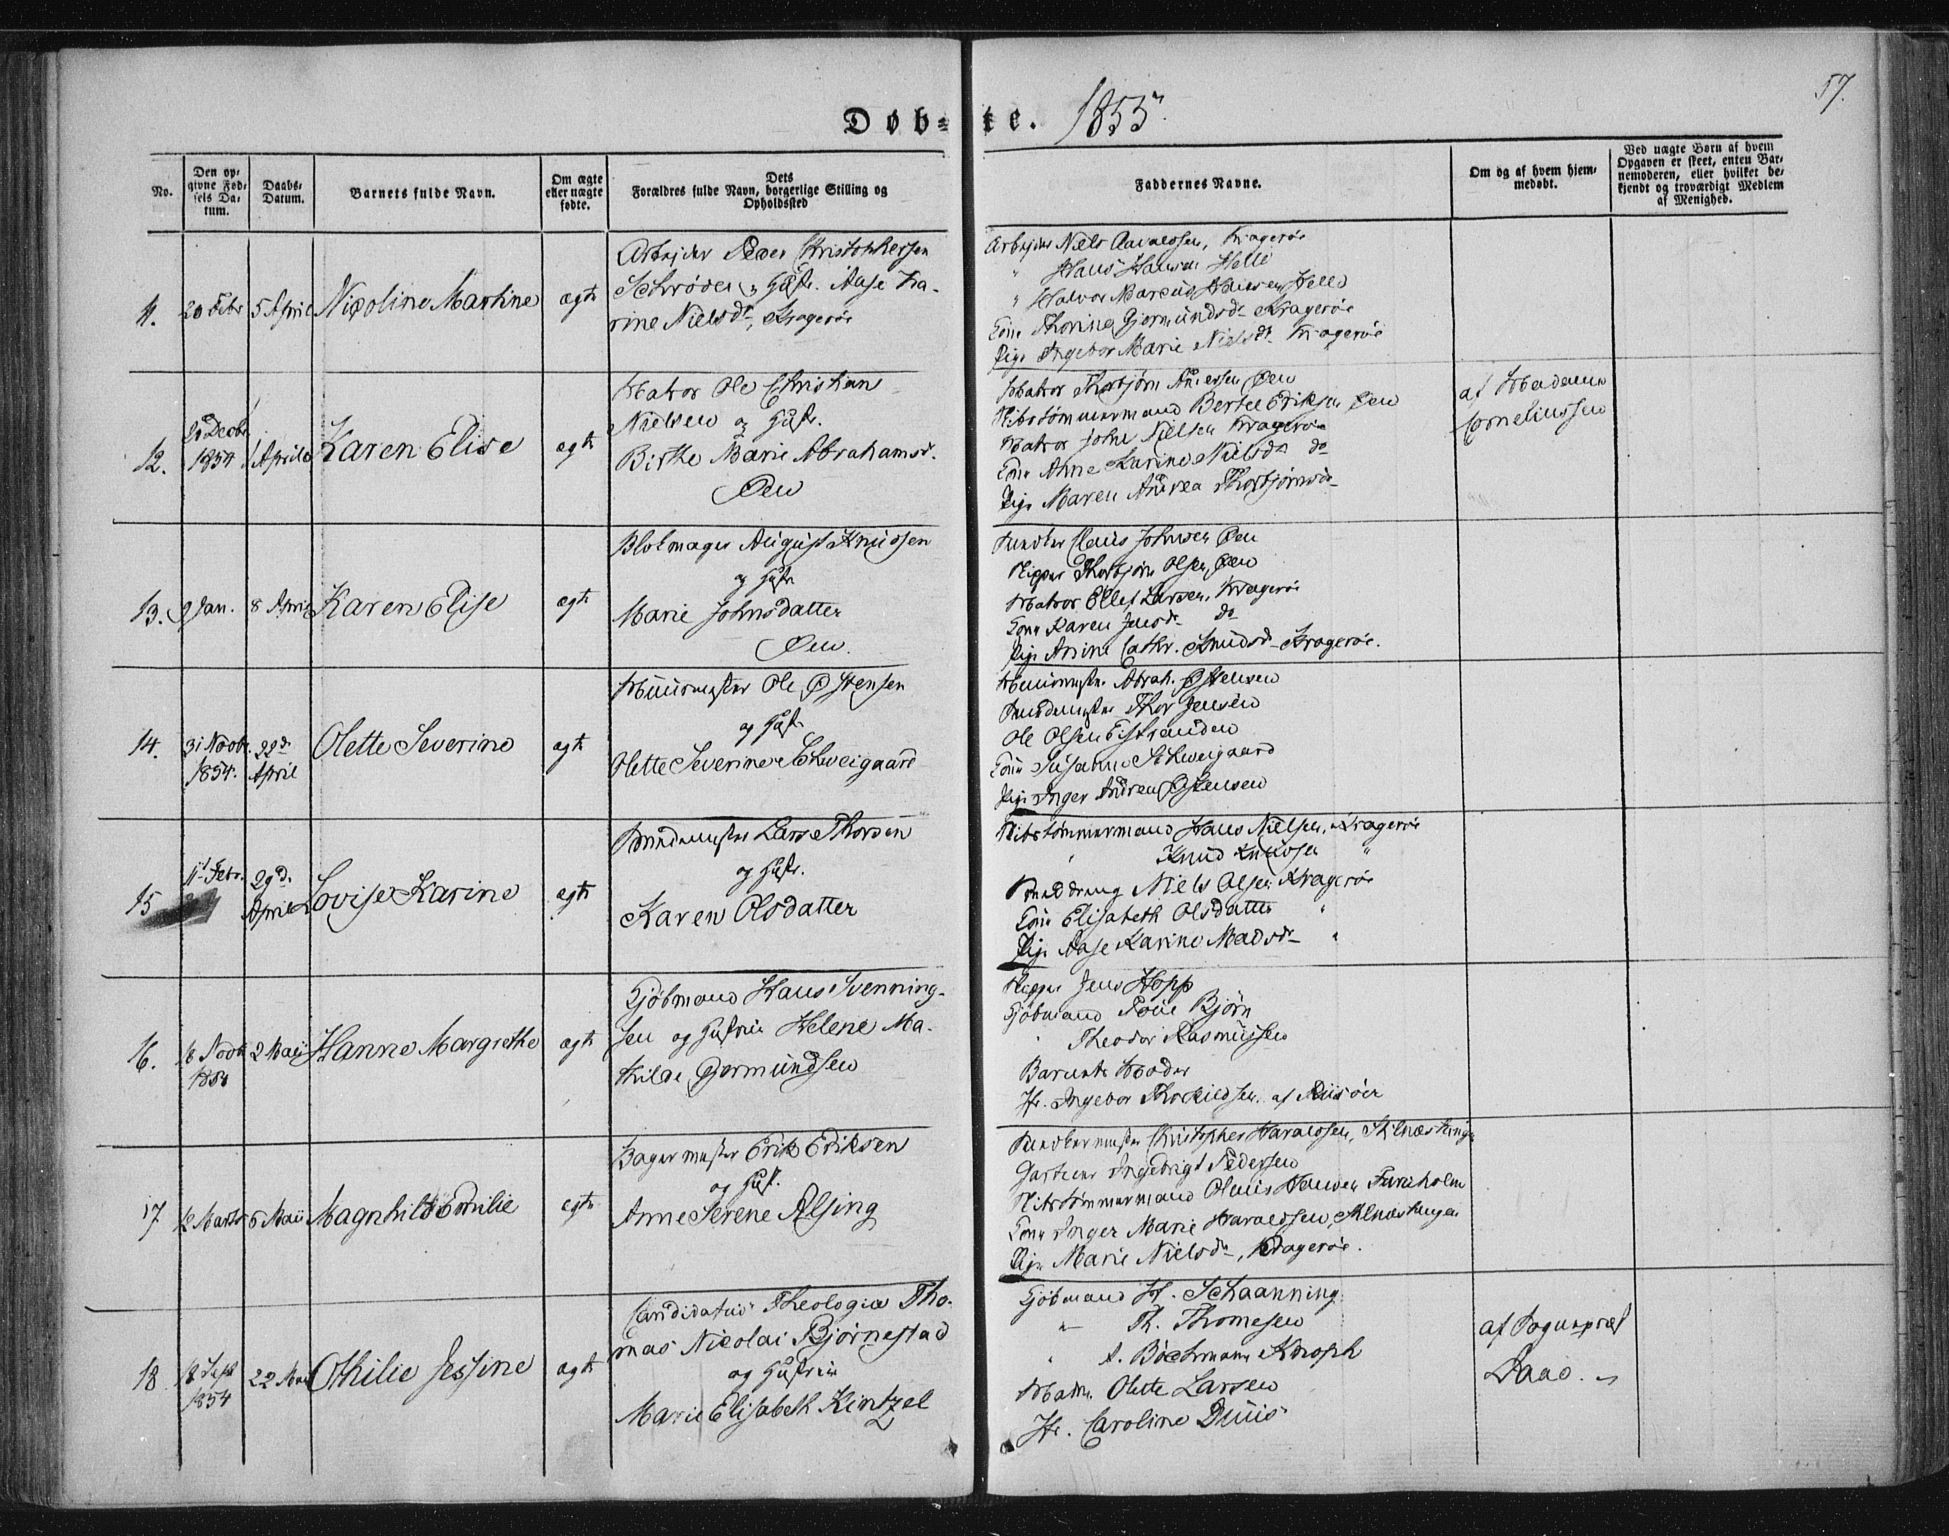 57.
Døb= te. 1855.
No.
Den op-
givne Fød-
sels Da-
tum.
Daabs-
Datum.
Barnets fulde Navn.
Om ægte
eller uægte
fødte.
Dets
Forældres fulde Navn, borgerlige Stilling og
Opholdssted
Faddernes Navne.
Om og af hvem hjem-
medøbt.
Ved uægte Børn af hvem
Opgaven er skeet, enten Bar-
nemoderen, eller hvilket be-
kjendt og troværdigt Medlem
af Menighed.
11.
20 Febr
5 April
Nicoline Martine
ægte
Arbejder Peder Christophersen
Schrøder og Hustr. Aase Ka-
rine Nielsdr, Kragerøe
Arbejder Niels Haraldsen, Kragerøe
" Hans Hansen Helle
" Halvor Marcus Hansen Helle
Kone Thorine Gjermundsdr Kragerøe
Pige Ingebor Marie Nielsdr Kragerøe
12.
Decbr
1854
1 April
Karen Elise
ægte
Matros Ole Christian
Nielsen og Hustr.
Birthe Marie Abrahamsd.
Øen
Matros Thorbjørn Andersen Øen
Skibstømmermand Bertel Eriksen Øen
Matros John Nielsen Kragerøe
Kone Anne Karine Nielsdr do
Pige Maren Andrea Thorbjørnsdr
af Madame
Corneliussen
13.
9 Jan.
8 April
Karen Elise
ægte
Blokmager August Knudsen
og Hustr
Marie Johnsdatter
Øen.
Snedker Claus Johnsen Øen
Skipper Thorbjørn Olsen Øen
Matros Ellef Larsen, Kragerøe
Kone Karen Jensdr do
Pige Anine Cathr. Knudsdr Kragerøe.
14.
31 Novbr.
1854.
22d
April
Olette Severine
ægte
Muurmester Ole Østensen
og Hustr
Olette Severine Schweigaard
Muurmester Abrah. Østensen
Smedmester Thor Jensen
Ole Olsen Fistranden
Kone Susanne Schweigaard
Pige Inger Andrea Østensen
15
11t Febr.
29d.
April
Lovise Karine
ægte
Smedmester Lars Thorsen
og Hustr.
Karen Olsdatter
Skibstømmermand Hans Nielsen, Kragerøe
" Knud Knudsen "
Smeddreng Niels Olsen Kragerøe
Kone Elisabeth Olsdatter "
Pige Aase Karine Madsdr "
16.
16 Novbr
1854
2 Maii
Hanne Margrethe
ægte
Kjøbmand Hans Svenning-
sen og Hustrue Helene Ma-
thilde Gjermundsen
Skipper Jens Hopp
Kjøbmand Tønne Bjørn
" Theodor Rasmussen
Barnets Moder
Jfr. Ingebor Thorkildsen af Riisøer
17
12 Marts
6 Maii
Magnhild Emilie
ægte
Bagermester Erik Eriksen
og Hust.
Anne Serene Alsing
Snedkermester Christopher Haraldsen, Skenæstangen
Gartner Ingebrigt Pedersen
Skibstømmermand Olaus Hansen Furuholm
Kone Inger Marie Haraldsen, Skenæstangen
Pige Marie Nielsdr, Kragerøe.
18
18 Sept
1854
22 Mai
Othilie Jessine
ægte
Candidatus Theologiæ Tho-
mas Nicolai Bjørnestad
og Hustrue
Marie Elisabeth Kintzel
Kjøbmand H. Schaanning
" Th. Thomesen
" A. Bøchmann Knoph
Madm. Olette Larsen
Jfr. Caroline Duus
af Sognepræst
Daae.